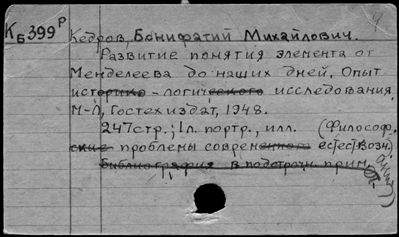 КБ399Р
Кедров, Бонифатий Михайлович.
Развитие понятия элемента от
Менделеева до наших дней. Опыт
историко-логического исследования.
М-Л, Гостехиздат, 1948.
247стр.; 1л. портр., илл. (Философ-
ские проблемы современного ест/ест/возн.)
Библиография в подстрочн. прим.